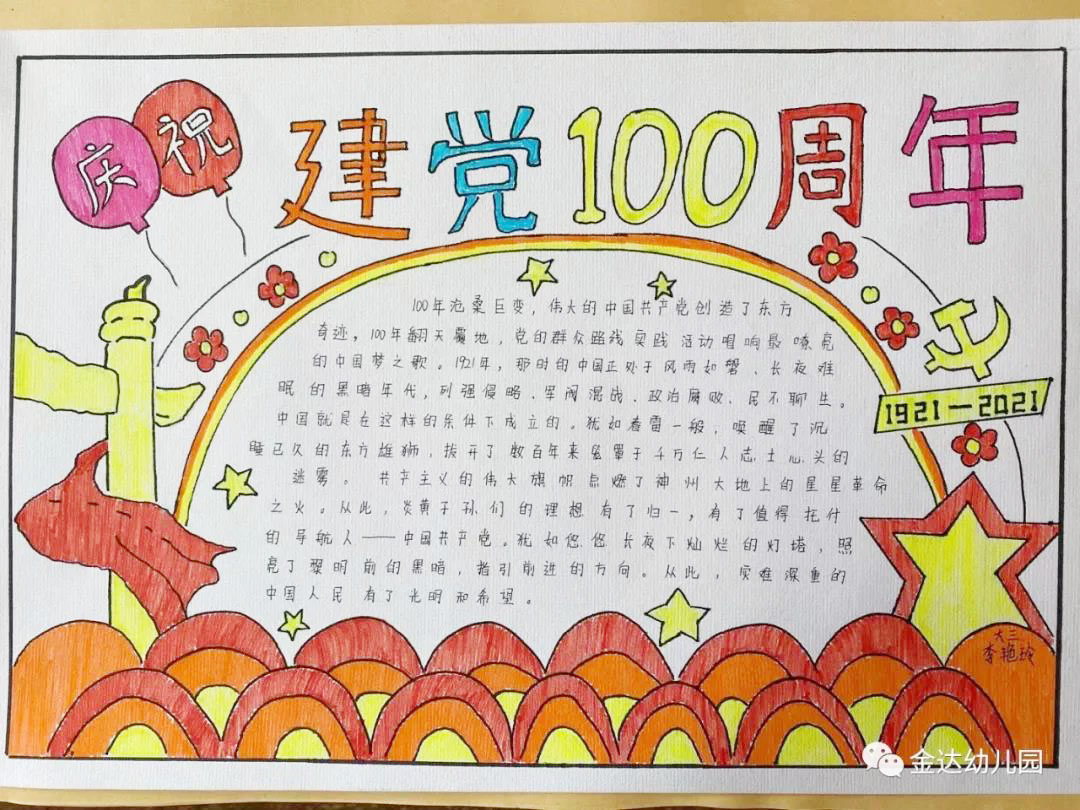 庆祝
建党100周年
100年沧桑巨变，伟大的中国共产党创造了东方
奇迹，100年翻天覆地，党的群众路线实践活动唱响最嘹亮
的中国梦之歌。1921年，那时的中国正处于风雨如磐、长夜难
眠的黑暗年代，列强侵略、军阀混战、政治腐败、民不聊生。
中国就是在这样的条件下成立的。犹如春雷一般，唤醒了沉
睡已久的东方雄狮，拔开了数百年来笼罩于千万仁人志士心头的
迷雾。共产主义的伟大旗帜点燃了神州大地上的星星革命
之火。从此，炎黄子孙们的理想有了归一，有了值得托付
的导航人——中国共产党。犹如您您长夜下灿烂的灯塔，照
亮了黎明前的黑暗，指引前进的方向。从此，灾难深重的
中国人民有了光明和希望。
1921—2021
大三
李艳玲
金达幼儿园